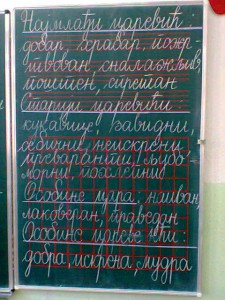 Најмлађи царевић:
добар, храбар, пожр-
твован, сналажљив,
поштен, спретан
Старији царевићи
кукавице, завидни,
себични, неискрени
преваранти, љубо-
морни, похлепни
Особине цара: наиван,
лаковеран, праведан
Особине
добра, искрена, мудра